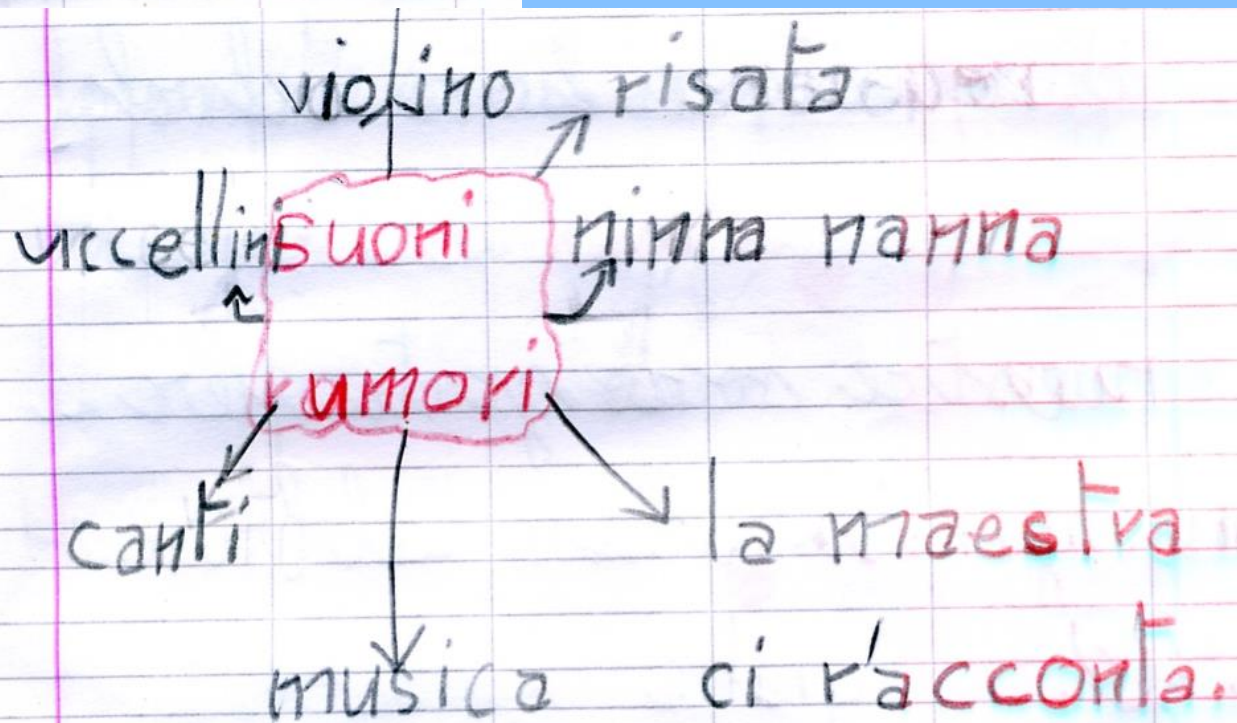 violino risata
uccellini suoni ninna nanna
rumori
canti la maestra
musica ci racconta.